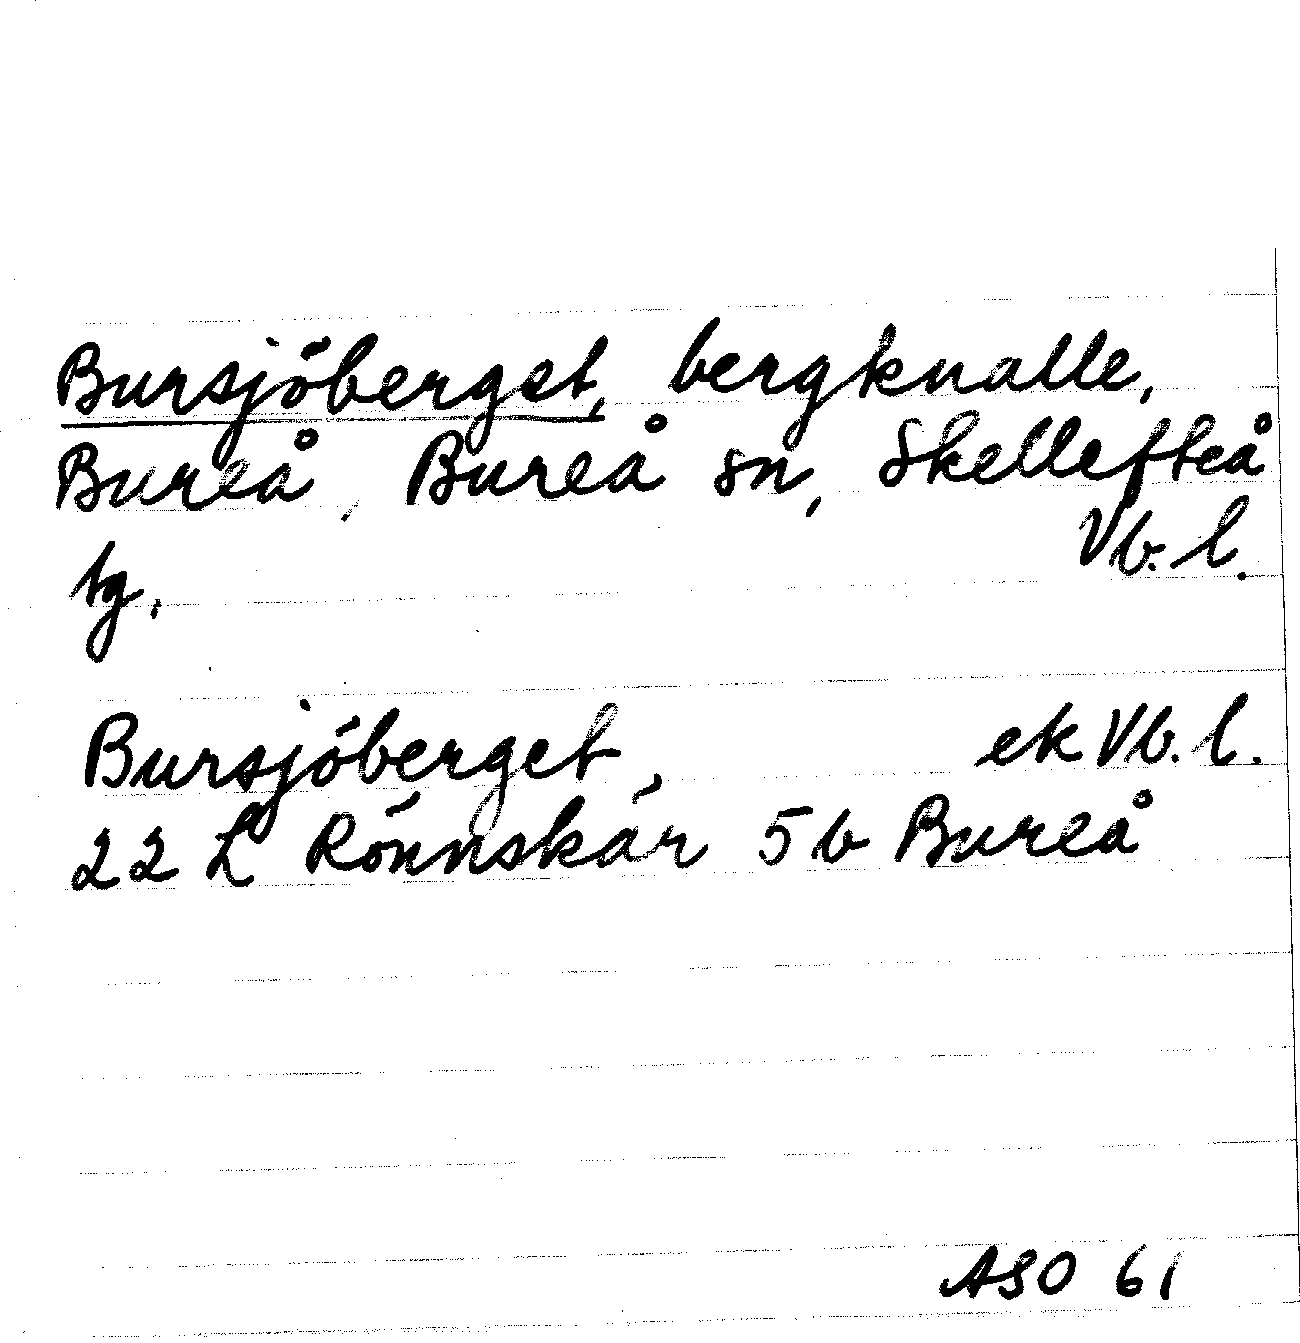 Bursjöberget, bergknalle,
Bureå, Bureå sn, Skellefteå
tg. Vb. l.
Bursjöberget, ek Vb. l.
22 L Rönnskär 5 b Bureå
ASO 61